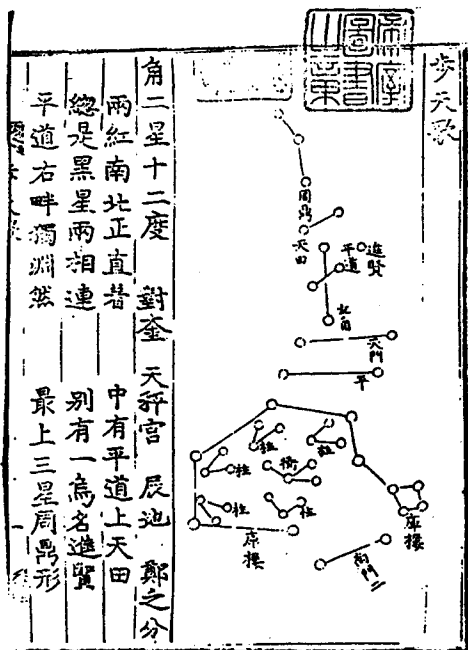 步天歌
周鼎
天田
進賢
平道
北角
天門
平
柱
柱
柱
衡
柱
柱
庫樓
庫樓
南門二
角二星十二度 對奎 天秤宮 辰地 鄭之分
兩紅南北正直著 中有平道上天田
總是黑星兩相連 別有一烏名進賢
平道右畔獨淵然 最上三星周鼎形